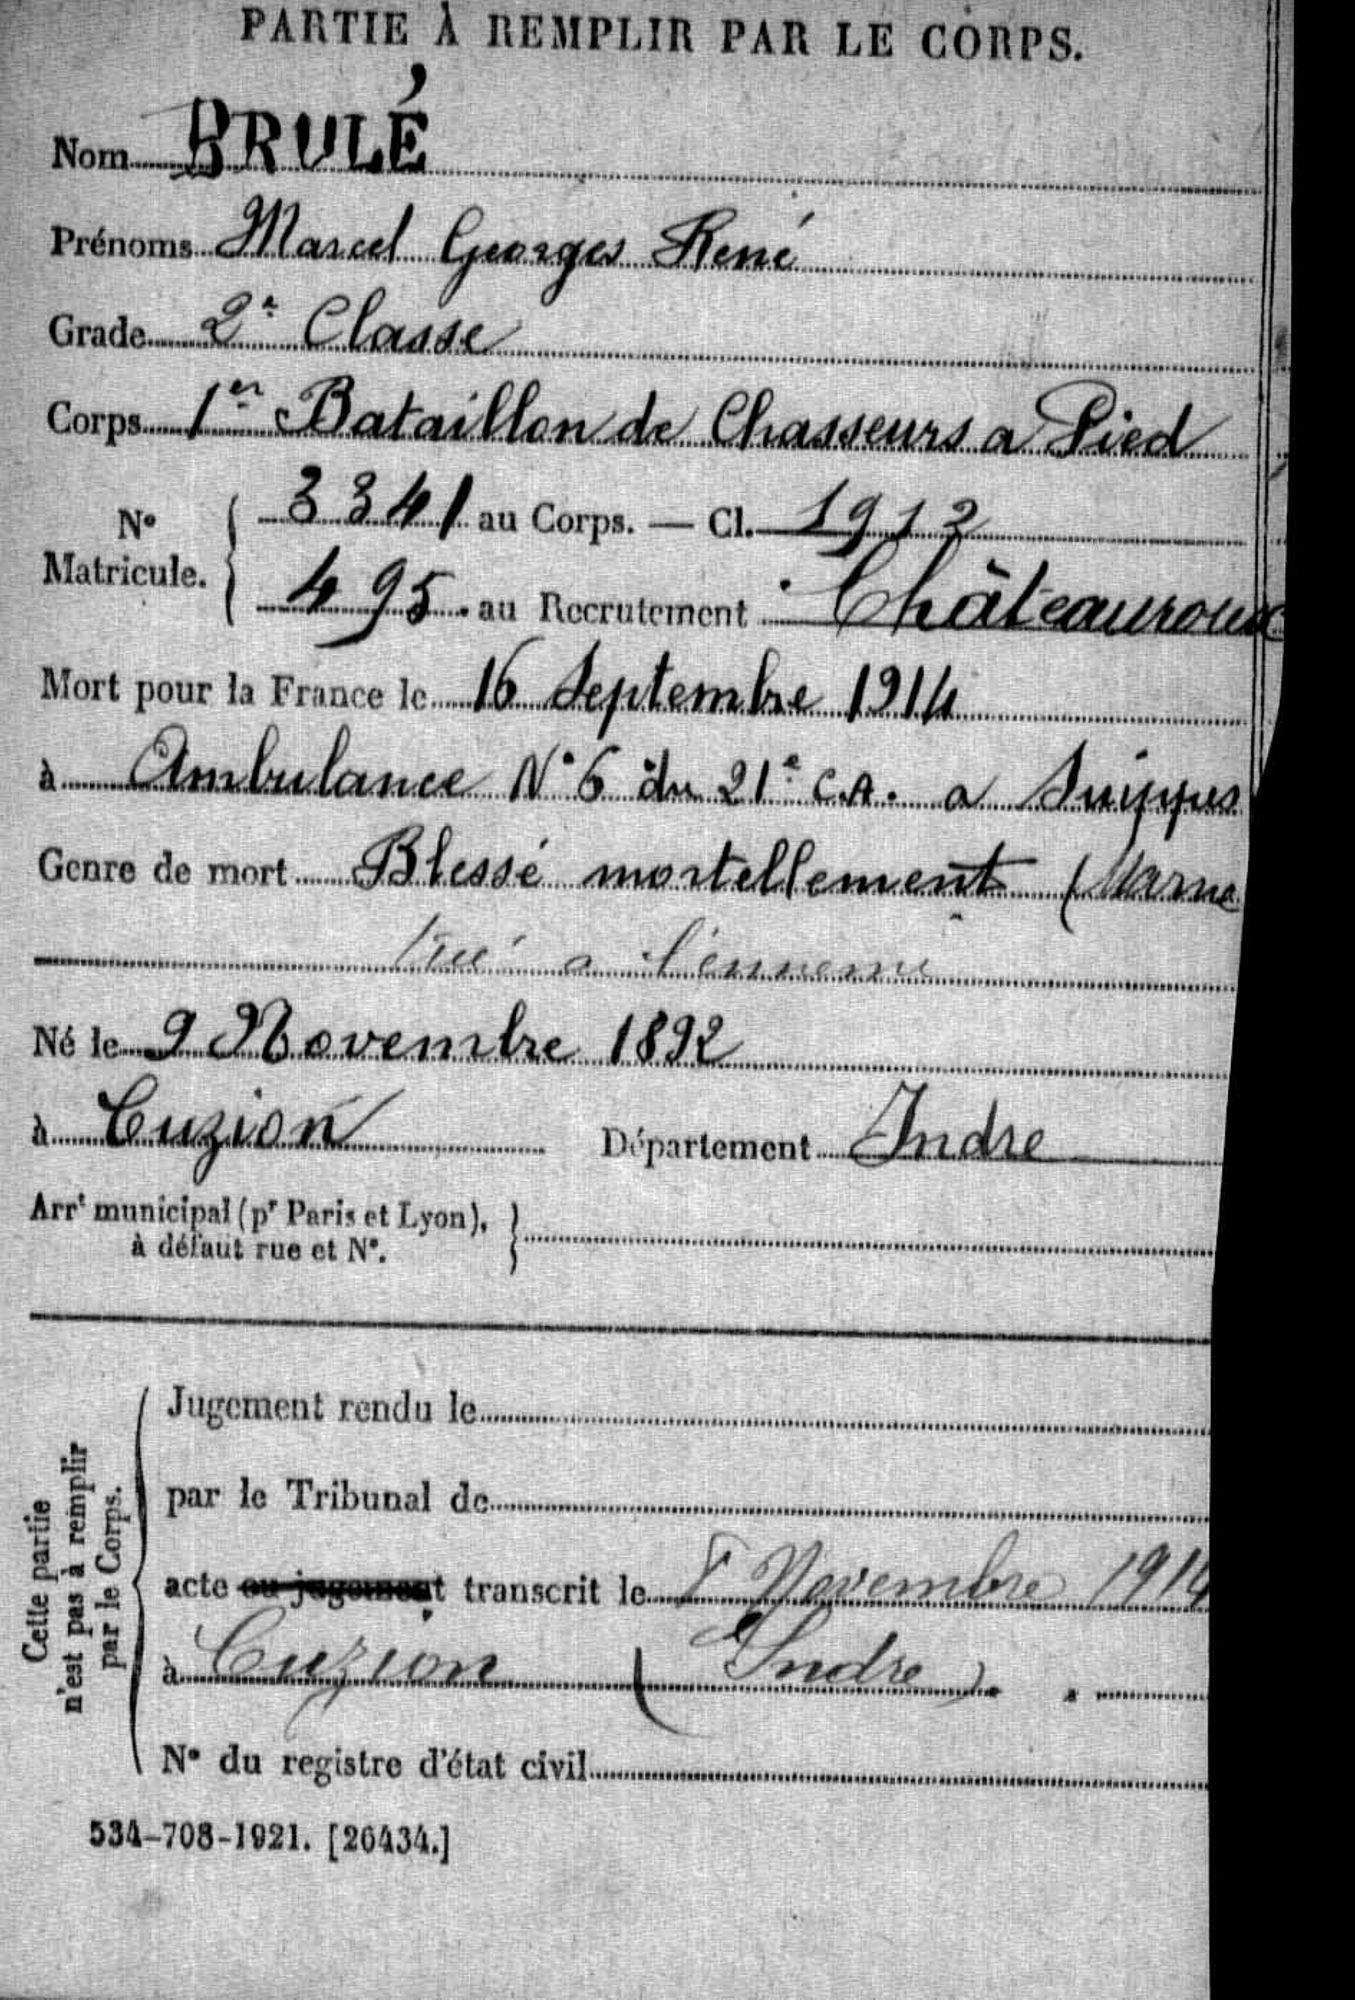 PARTIE À REMPLIR PAR LE CORPS.
Nom BRULÉ
Prénoms Marcel Georges René
Grade 2e Classe
Corps 1er Bataillon de Chasseurs a Pied
No Matricule. { 3341 au Corps. — Cl. 1912
495 au Recrutement Châteauroux
Mort pour la France le 16 Septembre 1914
à Ambulance No 6 du 21e C.A. a Suippes
Genre de mort Blessé mortellement (Marne
tué a l'ennemi
Né le 9 Novembre 1892
à Cuzion Département Indre
Arrt municipal (pr Paris et Lyon),
à défaut rue et No.
Cette partie
n'est pas à remplir
par le Corps.
Jugement rendu le
par le Tribunal de
acte ou jugement transcrit le Novembre 1914
à Cuzion (Indre).
No du registre d'état civil
534-708-1921. [26434.]